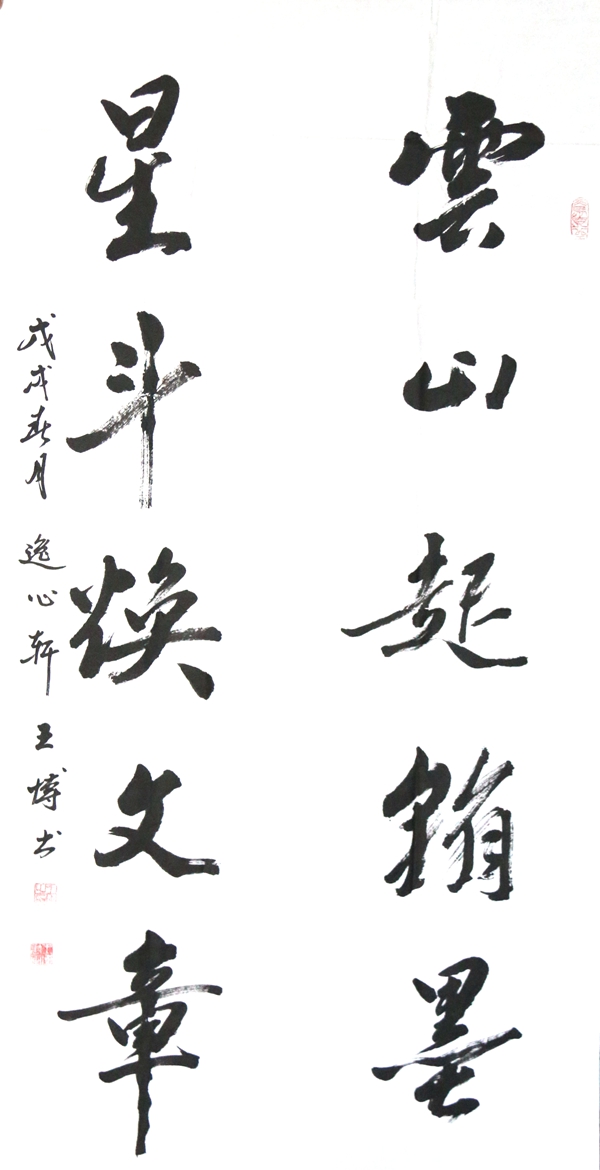 雲山起翰墨
星斗焕文章
戊戌春月 逸心轩 王博书